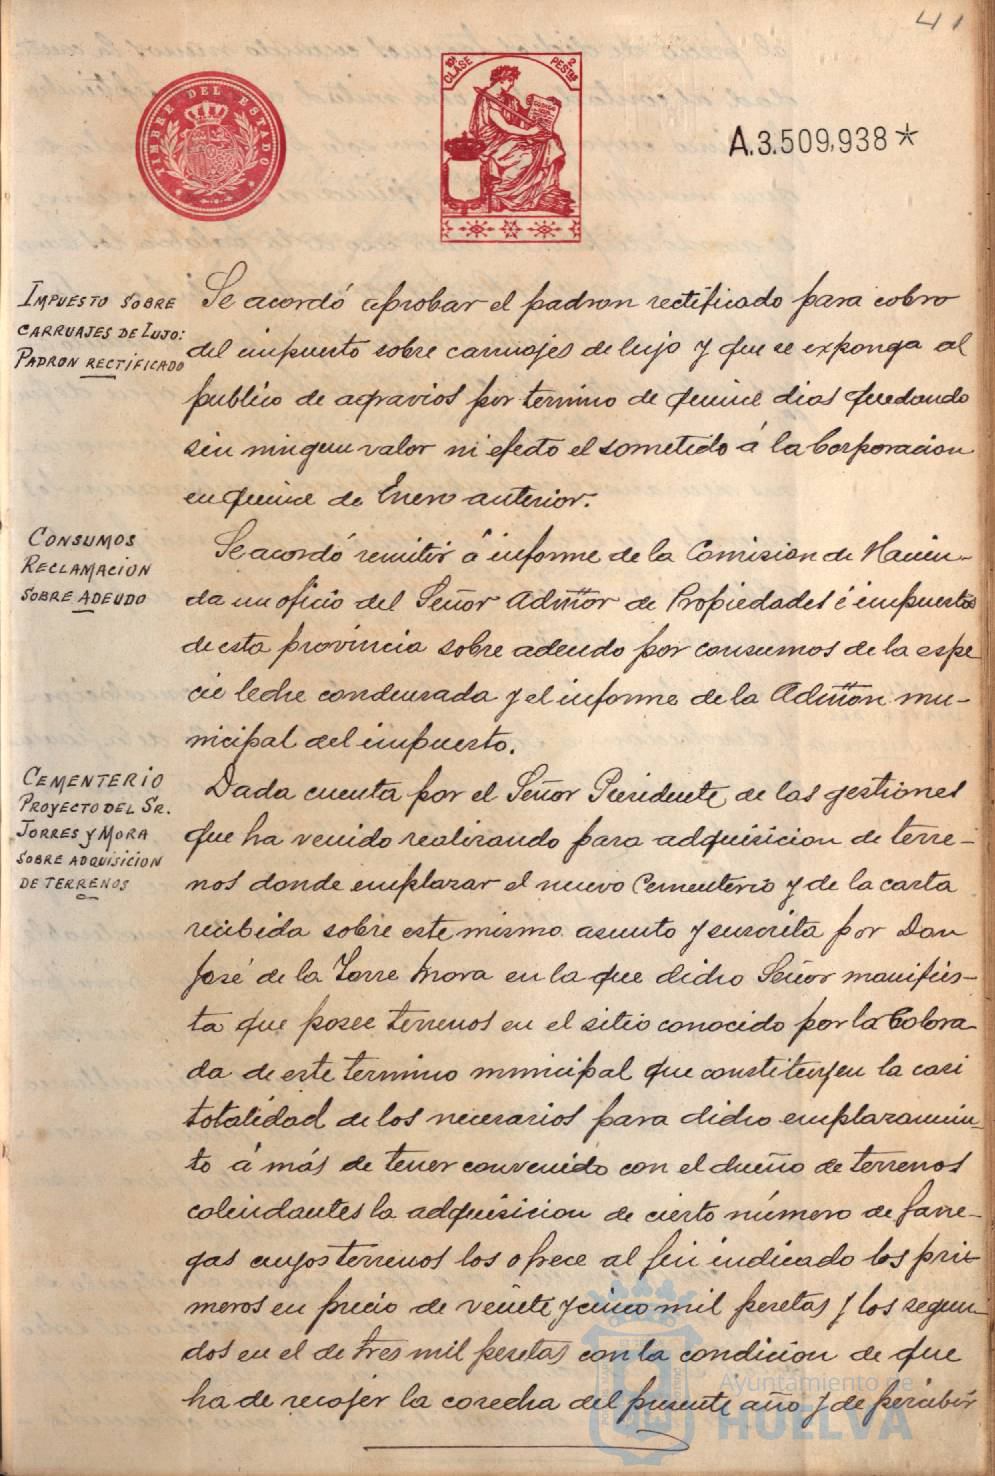 41
TIMBRE DEL ESTADO
10ª CLASE
2 PESTAS
A.3.509,938*
IMPUESTO SOBRE
CARRUAJES DE LUJO:
PADRON RECTIFICADO
Se acordó aprobar el padron rectificado para cobro
del impuesto sobre carruajes de lujo y que se exponga al
publico de agravios por termino de quince dias quedando
sin ningun valor ni efecto el sometido á la Corporacion
en quince de Enero anterior.
CONSUMOS
RECLAMACION
SOBRE ADEUDO
Se acordó remitir á informe de la Comision de Hacien-
da un oficio del Señor Admtor de Propiedades é impuestos
de esta provincia sobre adeudo por consumos de la espe
cie leche condensada y el informe de la Admton mu-
nicipal del impuesto.
CEMENTERIO
PROYECTO DEL SR.
TORRES Y MORA
SOBRE ADQUISICION
DE TERRENOS
Dada cuenta por el Señor Presidente de las gestiones
que ha venido realizando para adquisicion de terre-
nos donde emplazar el nuevo Cementerio y de la carta
recibida sobre este mismo asunto y suscrita por Don
José de la Torre Mora en la que dicho Señor manifies-
ta que posee terrenos en el sitio conocido por la Colora
da de este termino municipal que constituyen la casi
totalidad de los necesarios para dicho emplazamien-
to á más de tener convenido con el dueño de terrenos
colindantes la adquisicion de cierto número de fane-
gas cuyos terrenos los ofrece al fin indicado los pri-
meros en precio de veinte y cinco mil pesetas y los segun-
dos en el de tres mil pesetas con la condicion de que
ha de recojer la cosecha del presente año y de percibir
Ayuntamiento de
HUELVA